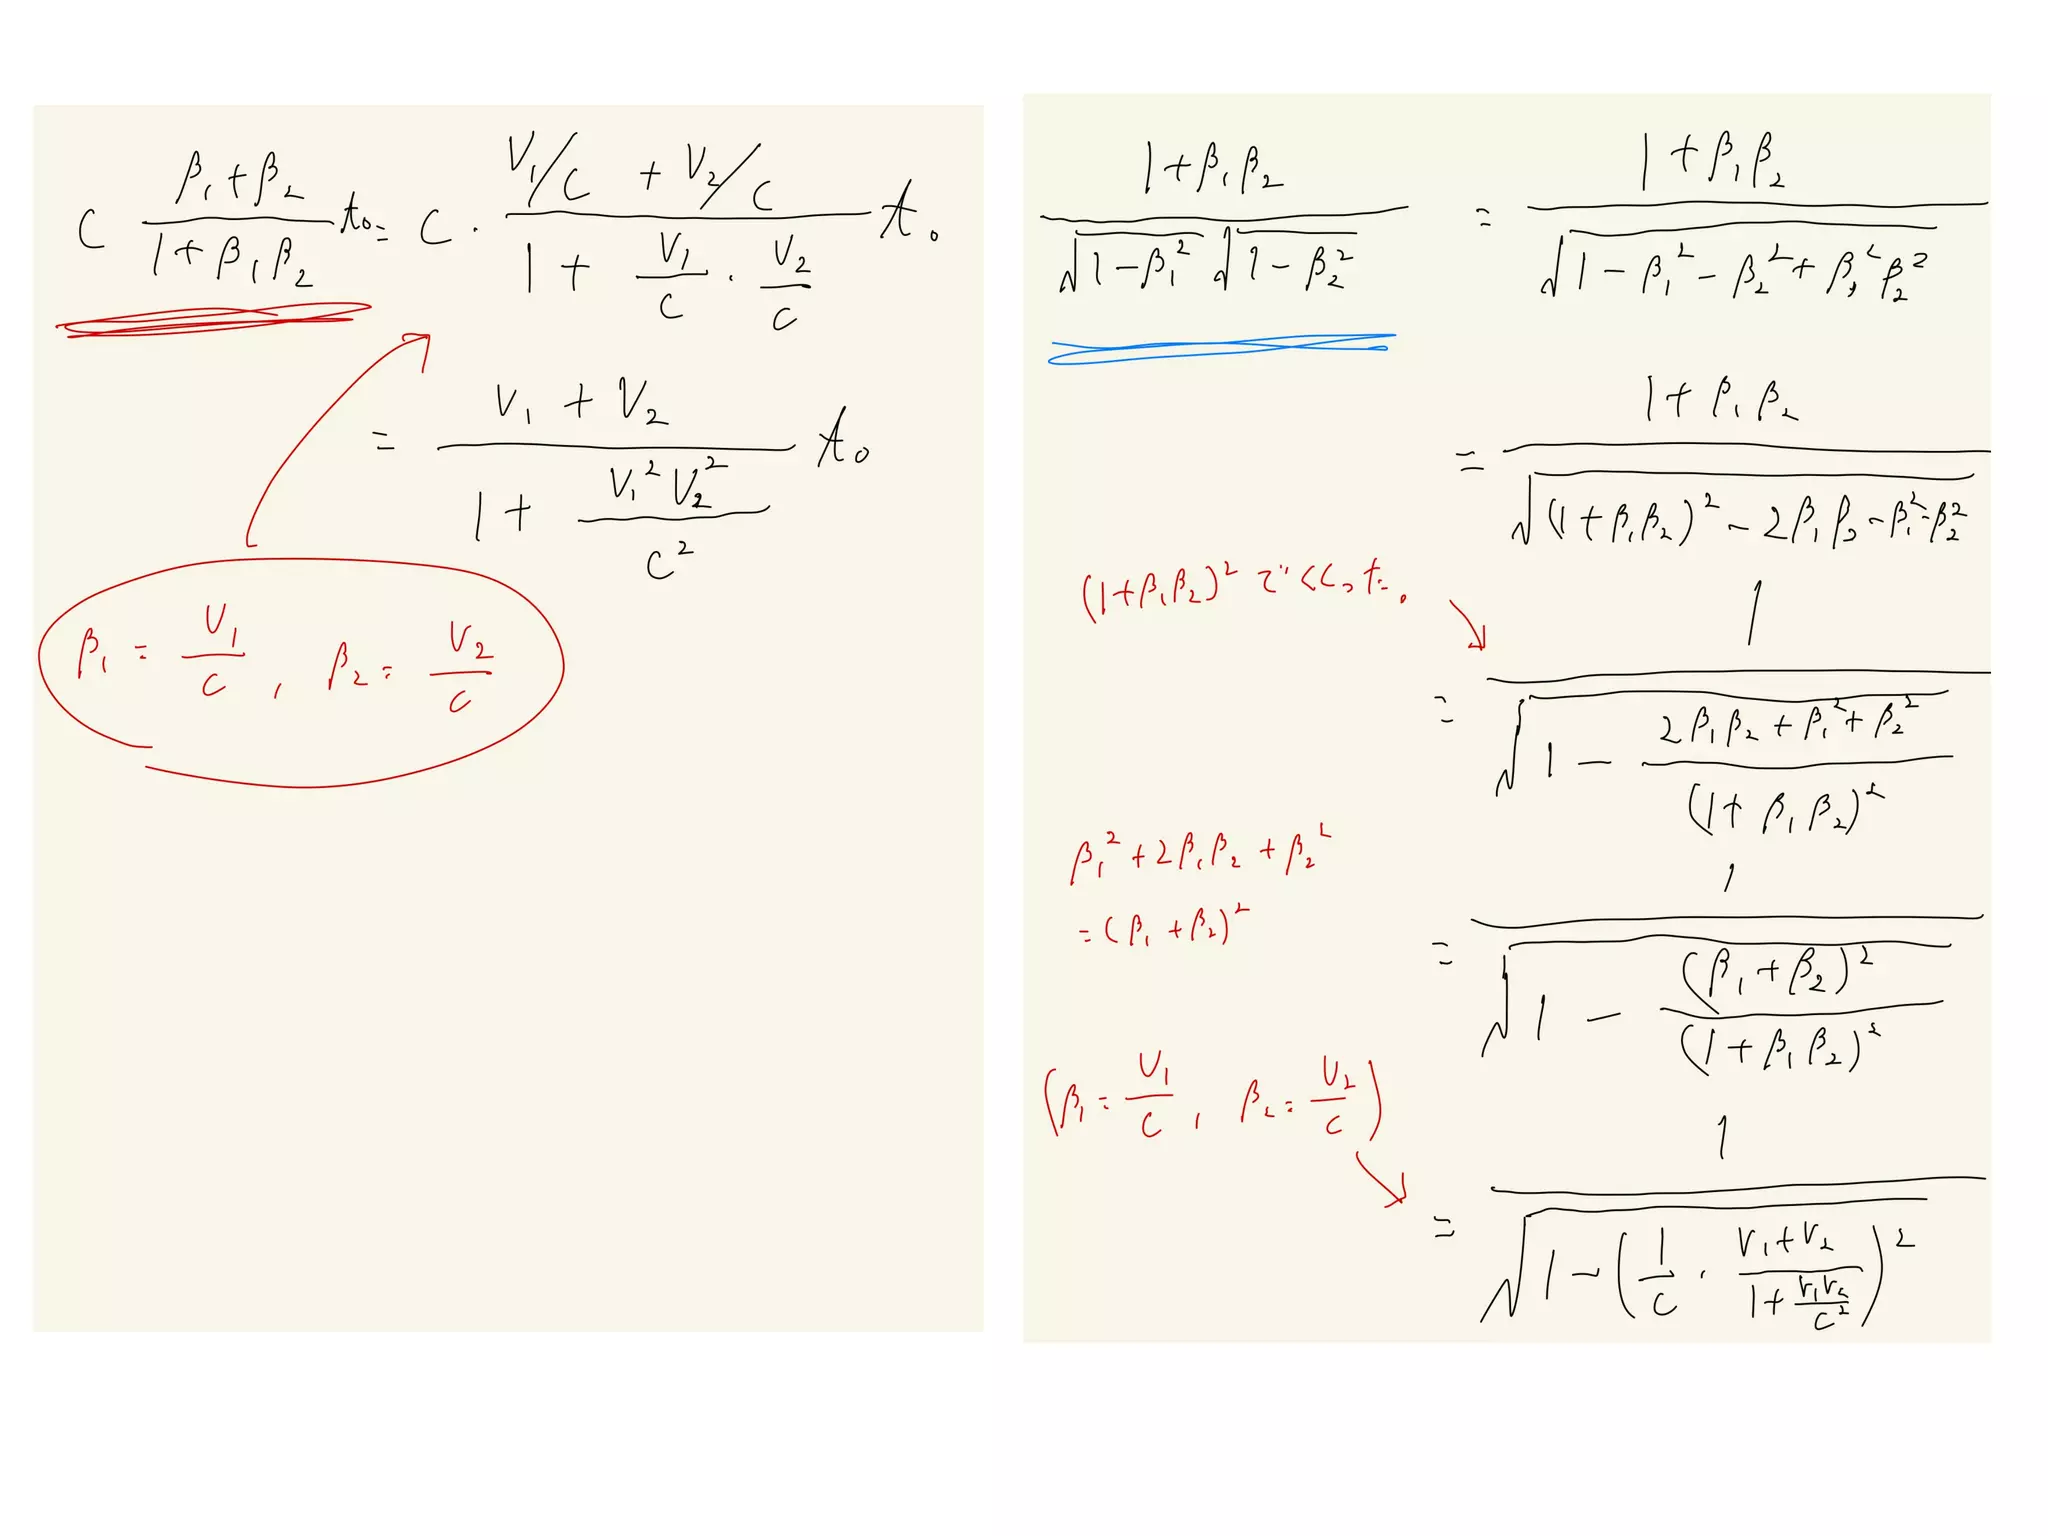 c (β₁+β₂)/(1+β₁β₂) t₀ = c · (V₁/c + V₂/c)/(1 + V₁/c · V₂/c) t₀
= (V₁ + V₂)/(1 + V₁²V₂²/c²) t₀
β₁ = V₁/c , β₂ = V₂/c
(1+β₁β₂)/(√(1-β₁²) √(1-β₂²)) = (1+β₁β₂)/√(1-β₁²-β₂²+β₁²β₂²)
= (1+β₁β₂)/√((1+β₁β₂)²-2β₁β₂-β₁²-β₂²)
(1+β₁β₂)² でくくった。
= 1/√(1 - (2β₁β₂+β₁²+β₂²)/(1+β₁β₂)²)
β₁²+2β₁β₂+β₂²
=(β₁+β₂)²
= 1/√(1 - (β₁+β₂)²/(1+β₁β₂)²)
(β₁=V₁/c , β₂=V₂/c)
= 1/√(1-(1/c · (V₁+V₂)/(1+V₁V₂/c²))²)